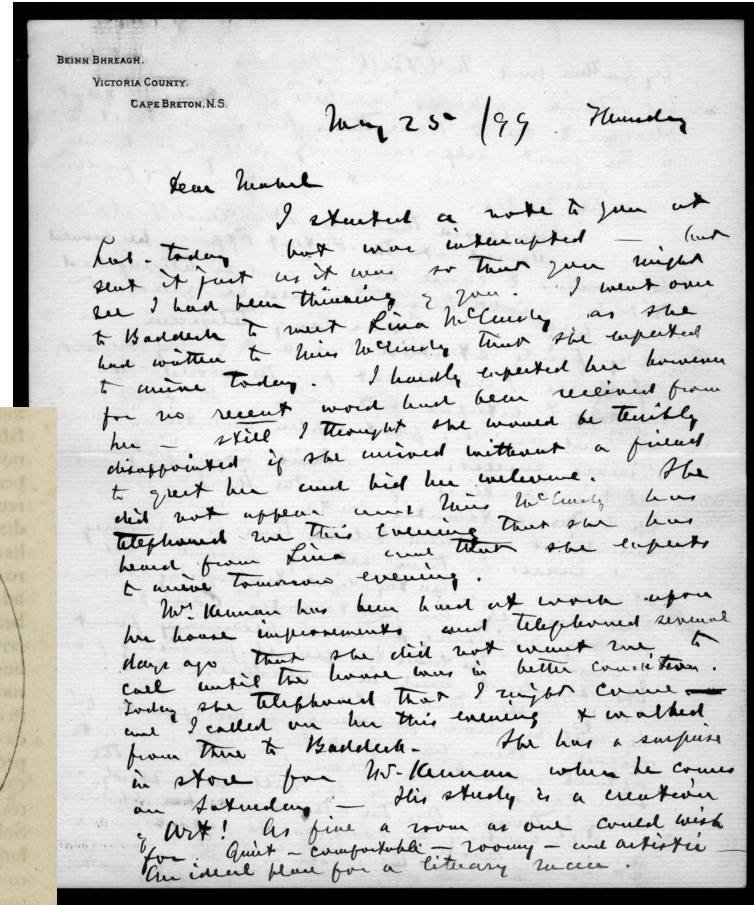 BEINN BHREAGH,
VICTORIA COUNTY,
CAPE BRETON, N.S.
May 25 /99 Thursday
Dear Mabel
I started a note to you at
but was interrupted — but
sent it just as it was so that you might
see I had been thinking of you. I went over
to Baddeck to meet Lina McCurdy as she
had written to Miss McCurdy that she expected
to arrive today. I hardly expected her however
for no recent word had been received from
her — still I thought she would be terribly
disappointed if she arrived without a friend
to greet her and bid her welcome. She
did not appear and Miss McCurdy has
telephoned me this evening that she has
heard from Lina and that she expects
to arrive tomorrow evening.
Mrs Kennan has been hard at work upon
her house improvements and telephoned several
days ago that she did not want me to
call until the house was in better condition.
Today she telephoned that I might come —
and I called on her this evening & walked
from there to Baddeck. She has a surprise
in store for Mr. Kennan when he comes
on Saturday — His study is a creation
of Art! As fine a room as one could wish
for Quiet — comfortable — roomy — and artistic —
An ideal place for a literary man.